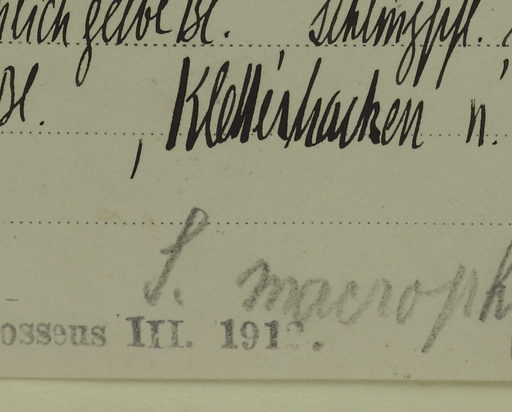 nlich gelbe Bl. Schlingpfl.
Bl.
, Kletterhacken n.
S. macroph
osseus III. 191